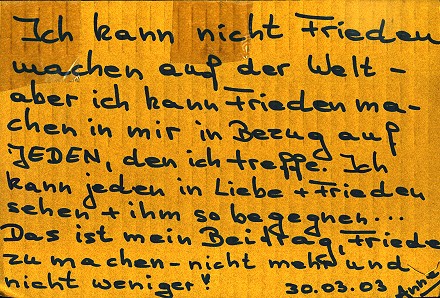 Ich kann nicht Frieden
machen auf der Welt -
aber ich kann Frieden ma-
chen in mir in Bezug auf
JEDEN, den ich treffe. Ich
kann jeden in Liebe + Frieden
sehen + ihm so begegnen...
Das ist mein Beitrag, Friede
zu machen - nicht mehr und
nicht weniger!
30.03.03 Anne